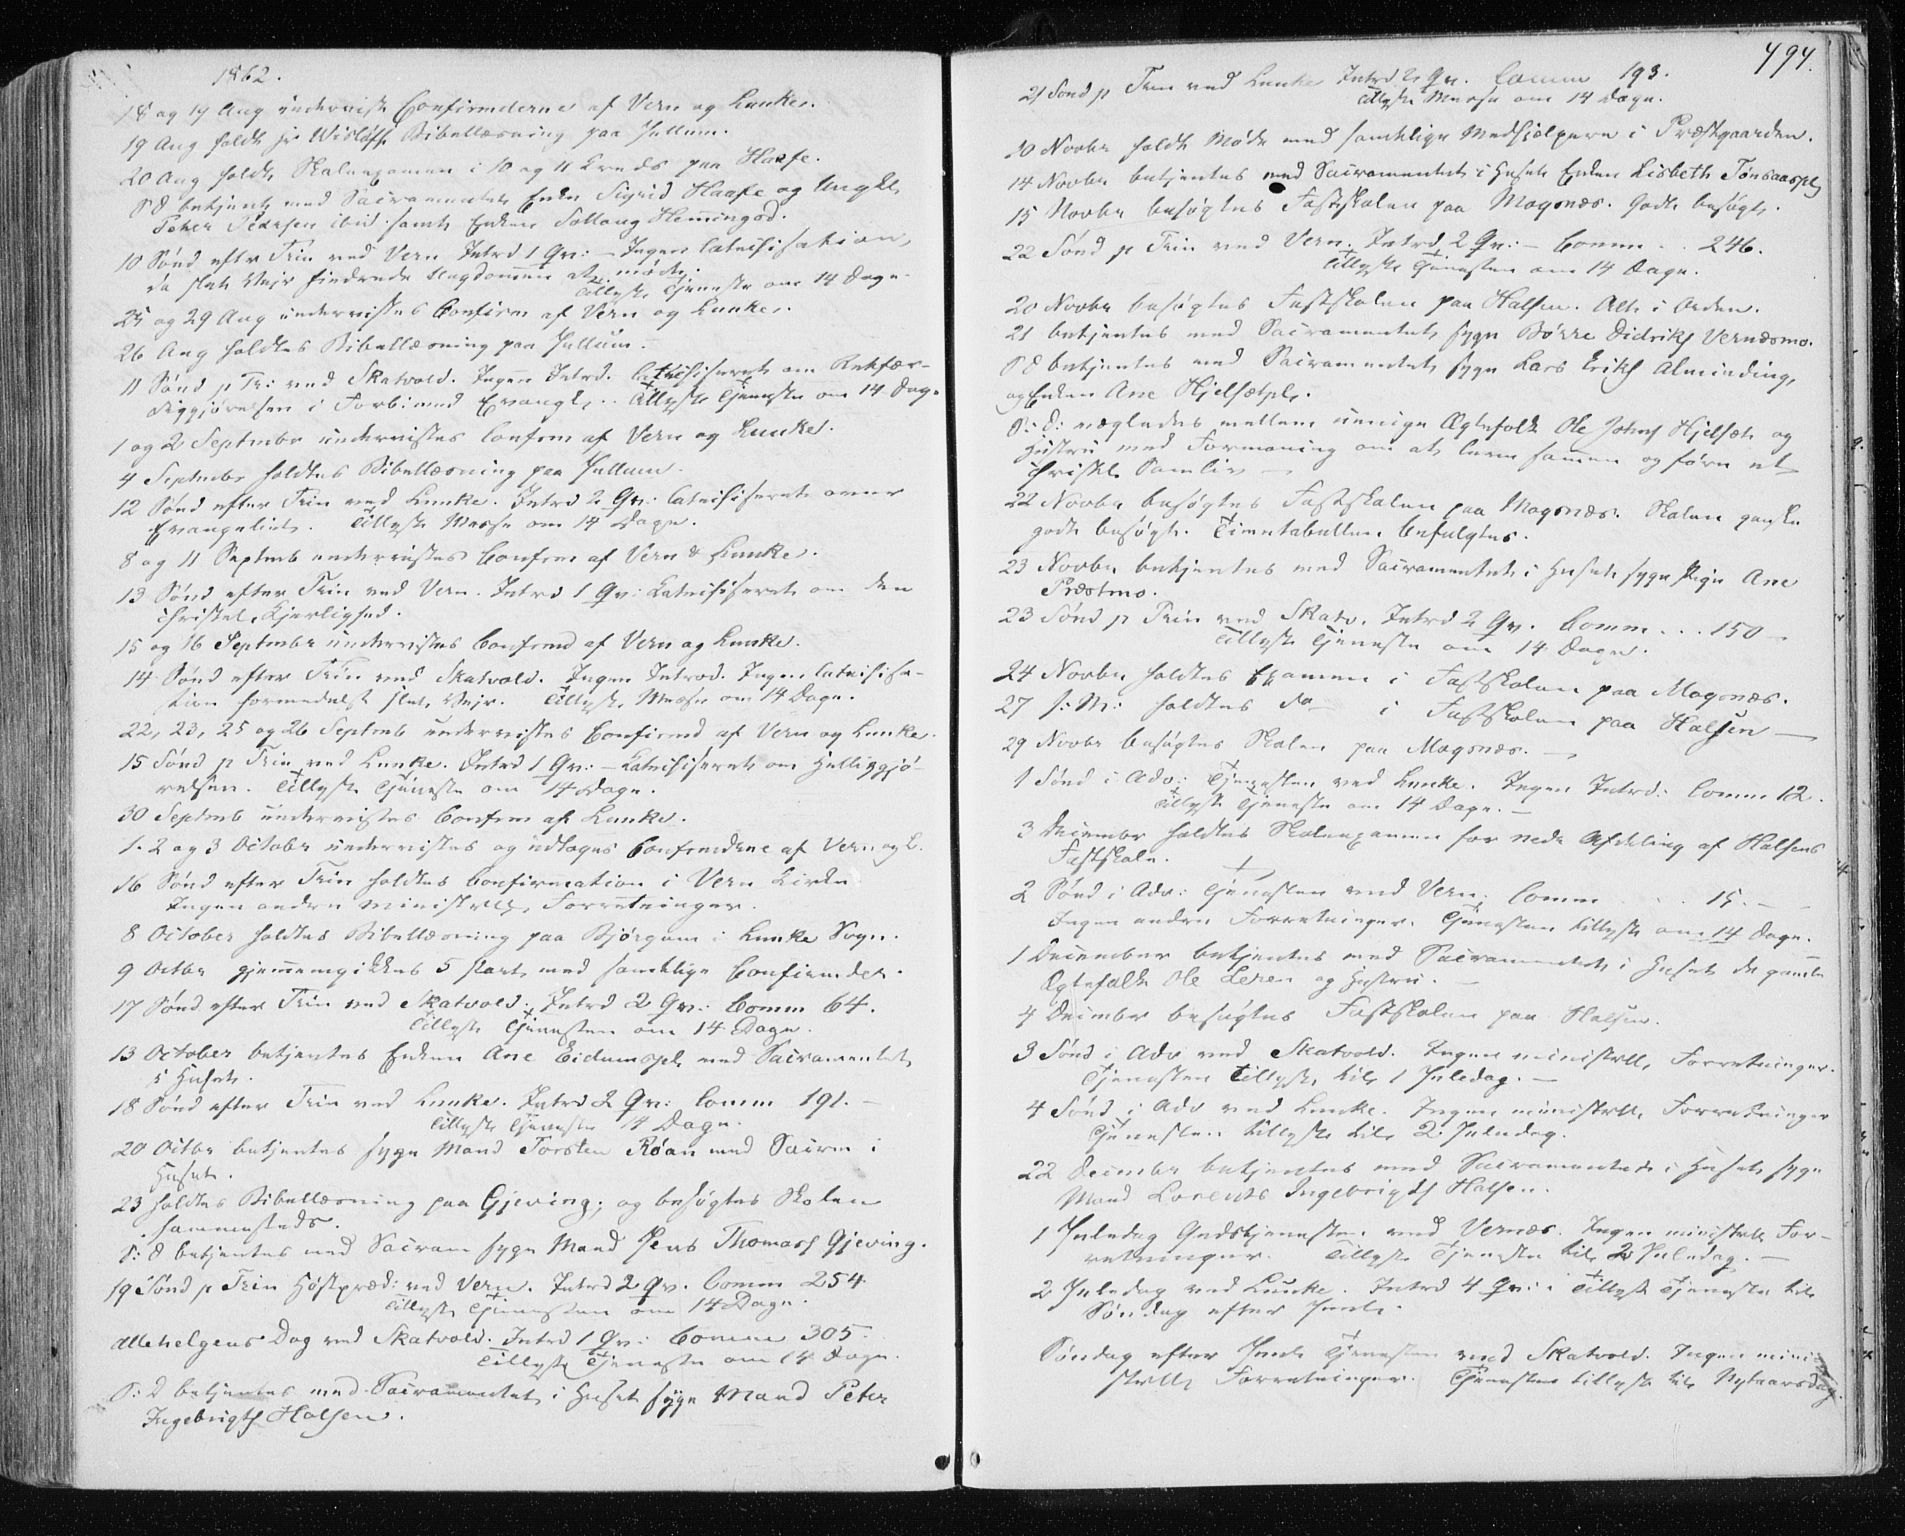 1862.
18 og 19 Aug underviist Confirmderne af Vern og Lunke.
19 Aug holdt Hr Wisløff Bibellæsning paa Jullum.
20 Aug holdt Skoleexamen i 10 og 11 Kreds paa Haafe.
S D betjent med Sacramentet Enke Sigrid Haafe og
Peter Pedersen ibid samt Enken Hemmingod.
10 Sønd efter Trin ved Vern Intrd 1 Qv: – Ingen Catechisation,
da slet Vejr hindrede Ungdommen at møde.
Tillyst Tjeneste om 14 Dage.
25 og 29 Aug undervistes Confirm af Vern og Lunke.
26 Aug holdtes Bibellæsning paa Jullum.
11 Sønd p Tr: ved Skatvold. Ingen Intrd. Cathechiseret om Retfær-
diggjørelsen i Forbi med Evangl. Tillyst Tjeneste om 14 Dage
1 og 2 Septmbr undervistes Confrm af Vern og Lunke.
4 Septmbr holdtes Bibellæsning paa Jullum.
12 Sønd efter Trin ved Lunke. Intrd 2 Qv: Catechiseret over
Evangeliet. Tillyst Messe om 14 Dage.
8 og 11 Septmb undervistes Confrm af Vern & Lunke.
13 Sønd efter Trin ved Vern. Intrd 1 Qv: Catechiseret om den
christel. Kjerlighed.
15 og 16 Septmbr undervistes Confrmd af Vern og Lunke.
14 Sønd efter Trin ved Skatvold. Ingen Introd. Ingen Catechisa-
tion formedelst slet Vejr. Tillyst Messe om 14 Dage.
22, 23, 25 og 26 Septmb undervistes Confirmd af Vern og Lunke.
15 Sønd p Trin ved Lunke. Intrd 1 Qv: – Catechiseret om Helliggjø-
relsen. Tillyst Tjeneste om 14 Dage.
30 Septmb undervistes Confrm af Lunke.
1. 2 og 3 Octobr undervistes og udtoges Confrmdrne af Vern og L.
16 Sønd efter Trin holdtes Confirmation i Vern Kirke
Ingen andre ministrelle Forretninger.
8 October holdtes Bibellæsning paa Bjørgum i Lunke Sogn.
9 Octbr gjennemgikkes 5 Part med samtlige Confirmder.
17 Sønd efter Trin ved Skatvold. Intrd 2 Qv: Comm 64.
Tillyst Tjenesten om 14 Dage.
13 October betjentes Enken Ane Eidumspl. med Sacramentet
i Huset.
18 Sønd efter Trin ved Lunke. Intrd 2 Qv: Comm 191. –
Tillyst Tjeneste 14 Dage.
20 Octbr betjentes syge Mand Torsten Røan med Sacrm i
Huset.
23 holdtes Bibellæsning paa Gjeving; og besøgtes Skolen
sammesteds.
S: D betjentes med Sacram syge Mand Jens Thomass Gjeving.
19 Sønd p Trin Høstpræd: ved Vern. Intrd 2 Qv. Comm 254.
Tillyst Tjenesten om 14 Dage.
Allehelgens Dag ved Skatvold. Intrd 1 Qv: Comm 305.
Tillyst Tjeneste om 14 Dage.
S: D betjentes med Sacramentet i Huset syge Mand Peter
Ingebrigts Halsen.
494.
21 Sønd p Trin ved Lunke Intrd 2 Qv. Comm 193.
Tillyst Messe om 14 Dage.
10 Novbr holdt Møde med samtlige Medhjelpere i Præstgaarden.
14 Novbr betjentes med Sacramentet i Huset Enken Lisbeth Tønsaaspl
15 Novbr besøgtes Fastskolen paa Mogsnæs. Godt besøgt.
22 Sønd p Trin ved Vern. Intrd 2 Qv: – Comm . . 246.
Tillyst Tjenesten om 14 Dage.
20 Novbr besøgtes Fastskolen paa Halsen. Alt i Orden.
21 betjentes med Sacramentet syge Børre Didriks Vernæsmo.
S D betjentes med Sacramentet syge Lars Eriks Alminding,
og Enken Ane Hjelsætpl.
S: D: mægledes mellem uenige Ægtefolk Ole Johns Hjelsæt og
Hustru med Formaning om at leve sammen og føre et
christel. Samliv —
22 Novbr besøgtes Fastskolen paa Mogsnæs. Skolen ganske
godt besøgt. Timetabellen befulgtes.
23 Novbr betjentes med Sacramentet i Huset syge Pige Ane
Præstmo.
23 Sønd p Trin ved Skatv. Intrd 2 Qv. Comm . . . 150 –
Tillyst Tjeneste om 14 Dage.
24 Novbr holdtes Examen i Fastskolen paa Mogsnæs.
27 s: M: holdtes do i Fastskolen paa Halsen —
29 Novbr besøgtes Skolen paa Mogsnæs. —
1 Sønd i Adv: Tjenesten ved Lunke. Ingen Intrd: Comm 12.
Tillyst Tjeneste om 14 Dage. –
3 Decembr holdtes Skoleexamen for nedr Afdeling af Halsens
Fastskole.
2 Sønd i Adv: Tjenesten ved Vern. Comm . . . 15. – –
Ingen andre Forretninger. Tjenesten tillyst om 14 Dage.
1 December betjentes med Sacramentet i Huset de gamle
Ægtefolk Ole Leren og Hustru. –
4 Decmber besøgtes Fastskolen paa Halsen.
3 Sønd i Adv ved Skatvold. Ingen ministrelle Forretninger.
Tjenesten tillyst til 1 Juledag. –
4 Sønd i Adv ved Lunke. Ingen ministrelle Forretninger
Tjenesten tillyst til 2. Juledag.
22 Decmbr betjentes med Sacramentet i Huset syge
Mand Lorents Ingebrigts Halsen.
1 Juledag Gudstjenesten ved Vernæs. Ingen ministrelle For-
retninger. Tillyst Tjeneste til 2 Juledag. –
2 Juledag ved Lunke. Intrd 4 Qv: Tillyst Tjeneste til
Søndag efter Juul.
Søndag efter Juul Tjenesten ved Skatvold. Ingen mini
strelle Forretninger. Tjenesten tillyst til Nytaarsdag